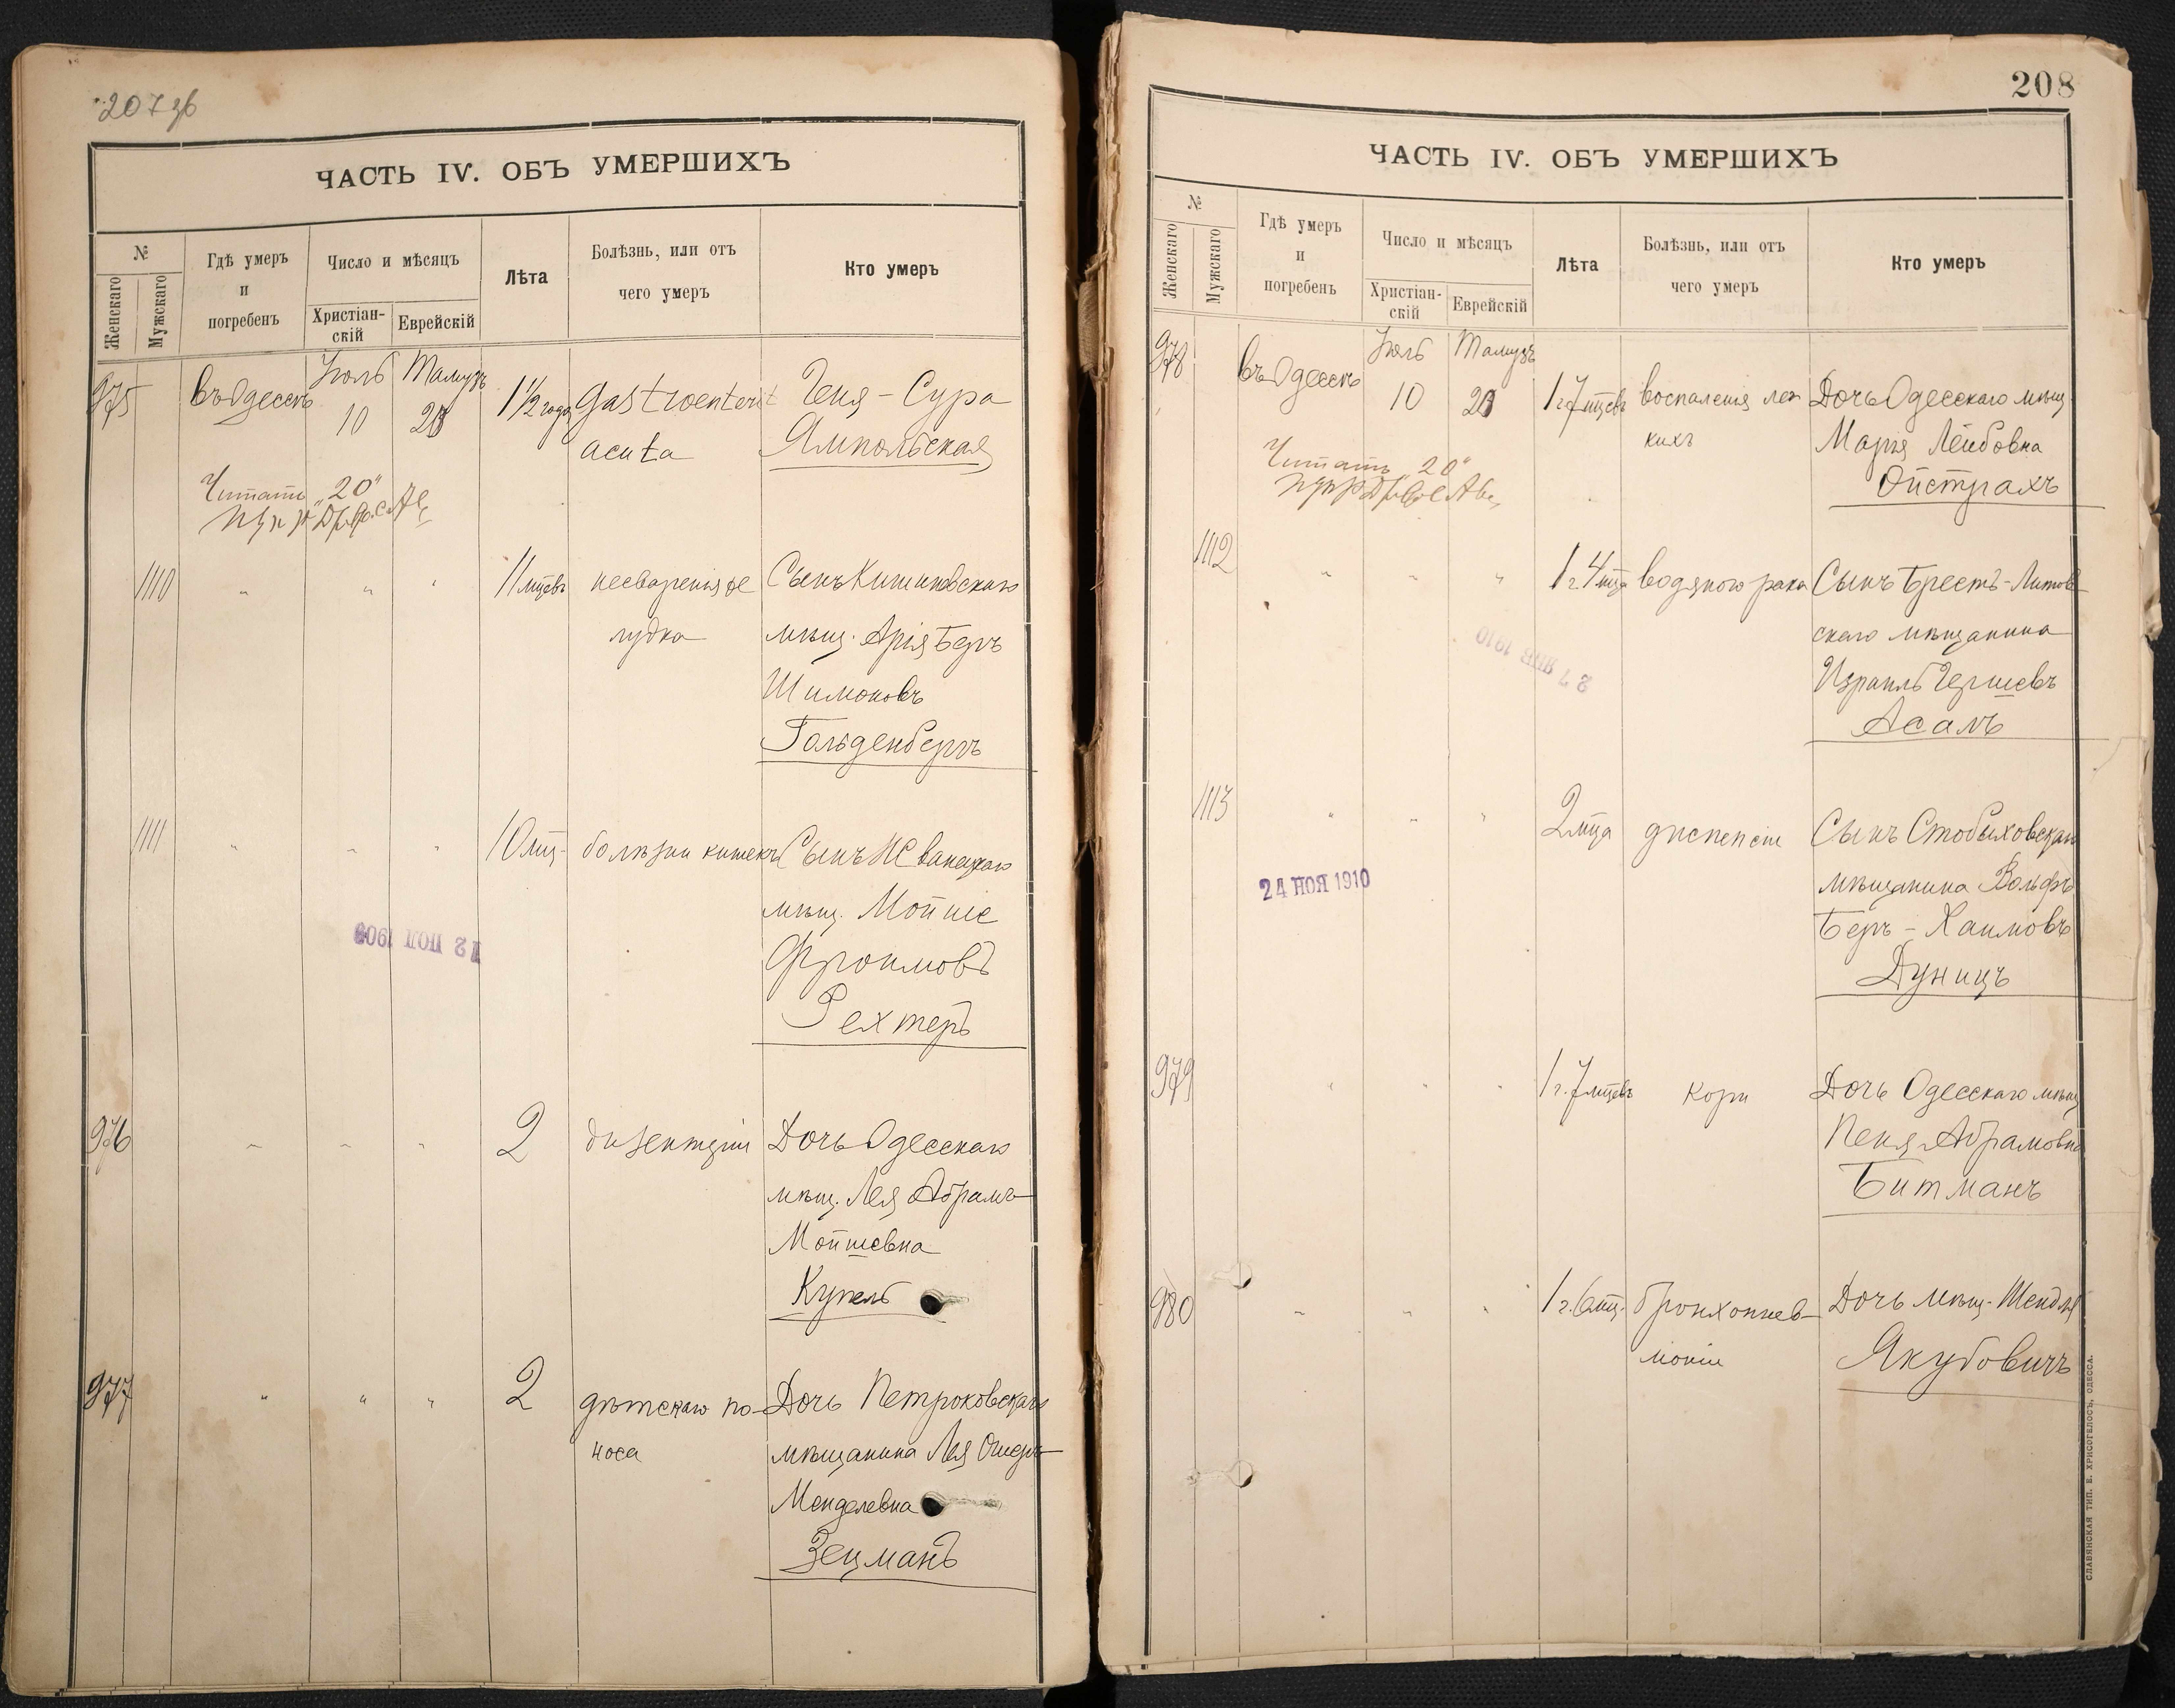 207 зв
ЧАСТЬ IV. ОБЪ УМЕРШИХЪ
№
Женскаго
Мужскаго
Гдѣ умеръ
и
погребенъ
Число и мѣсяцъ
Христіан-
скій
Еврейскій
Лѣта
Болѣзнь, или отъ
чего умеръ
Кто умеръ
975
въ Одессѣ
Іюль
10
Тамузъ
1 1/2 года
Gastroenterit
acuta
Геня-Сура
Ямпольская
Читать „20“
1110
"
"
"
11 мцевъ
несваренія же
лудка
Сынъ Кишиневскаго
мѣщ. Арія Беръ
Шимоновъ
Гольденбергъ
1111
"
"
"
10 мц.
болѣзни кишекъ
Сынъ
мѣщ. Мойше
Фроимовъ
Рехтеръ
976
"
"
"
2
дизентеріи
Дочь Одесскаго
мѣщ. Лея Абрамъ-
Мойшевна
Купель
977
"
"
"
2
дѣтскаго по-
носа
Дочь Петроковскаго
мѣщанина Лея Ошеръ-
Менделевна
Зецманъ
208
ЧАСТЬ IV. ОБЪ УМЕРШИХЪ
№
Женскаго
Мужскаго
Гдѣ умеръ
и
погребенъ
Число и мѣсяцъ
Христіан-
скій
Еврейскій
Лѣта
Болѣзнь, или отъ
чего умеръ
Кто умеръ
978
въ Одессѣ
Іюль
10
Тамузъ
1 г. 7 мцевъ
воспаленія лег
кихъ
Дочь Одесскаго мѣщ.
Марія Лейбовна
Ойстрахъ
Читать „20“
1112
"
"
"
1 г. 4 мца
водяного рака
Сынъ Брестъ-Литов
скаго мѣщанина
Израиль Гершевъ
Асамъ
27 ЯНВ 1910
1113
"
"
"
2 мца
диспепсіи
Сынъ Стобыховскаго
мѣщанина Вольфъ
Беръ-Хаимовъ
Дуницъ
24 НОЯ 1910
979
"
"
"
1 г. 7 мцевъ
кори
Дочь Одесскаго мѣщ
Пеня Абрамовна
Битманъ
980
"
"
"
1 г. 6 мц.
бронхопнев-
моніи
Дочь мѣщ. Шендля
Якубовичъ
СЛАВЯНСКАЯ ТИП. Е. ХРИСОГЕЛОСЪ, ОДЕССА.